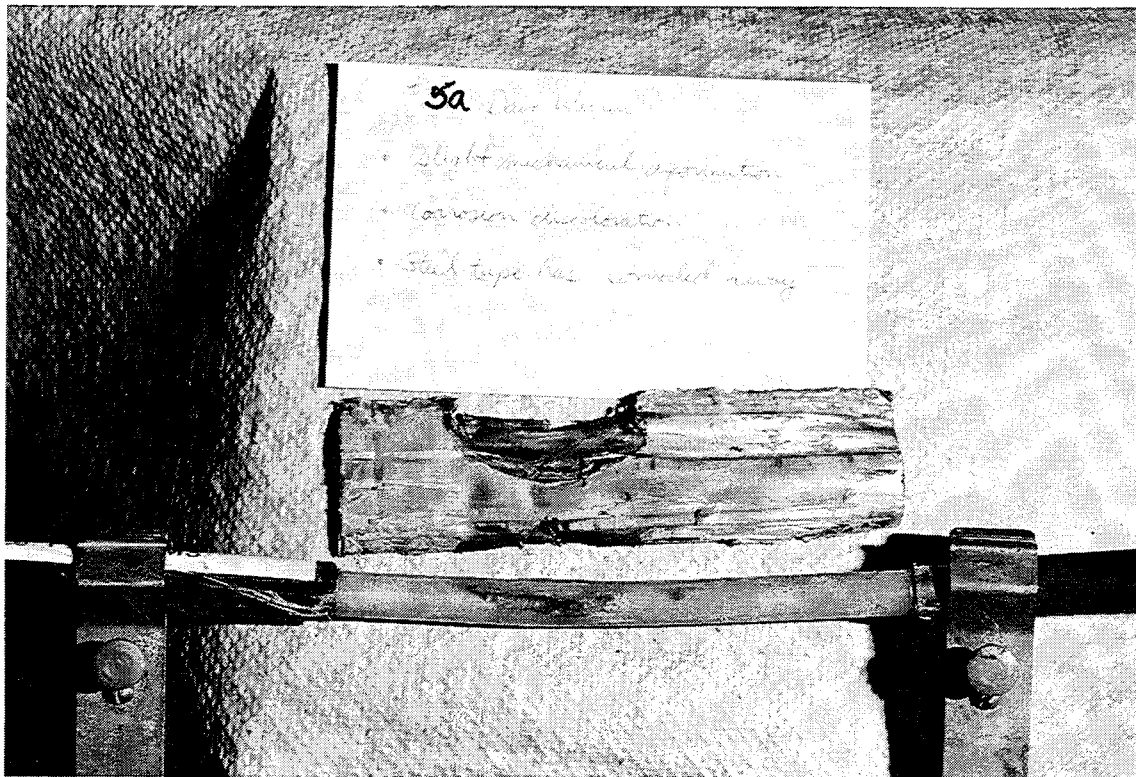 5a
• Slight mechanical deformation
• Corrosion discoloration
• Steel tape has corroded away